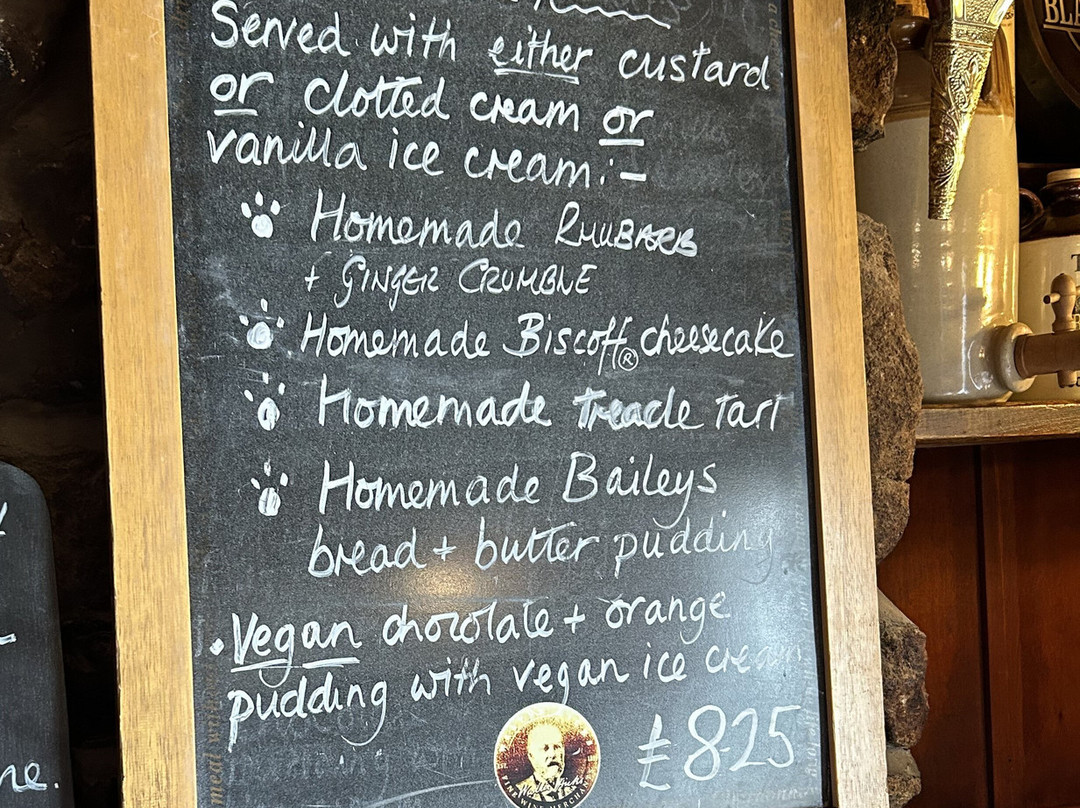 Served with either custard
or clotted cream or
vanilla ice cream:-
Homemade RHUBARB
+ GINGER CRUMBLE
Homemade Biscoff® cheesecake
Homemade treacle Tart
Homemade Baileys
bread + butter pudding
• Vegan chocolate + orange
pudding with vegan ice cream
£8.25
FINE WINE MERCHANT
ne.
BLA